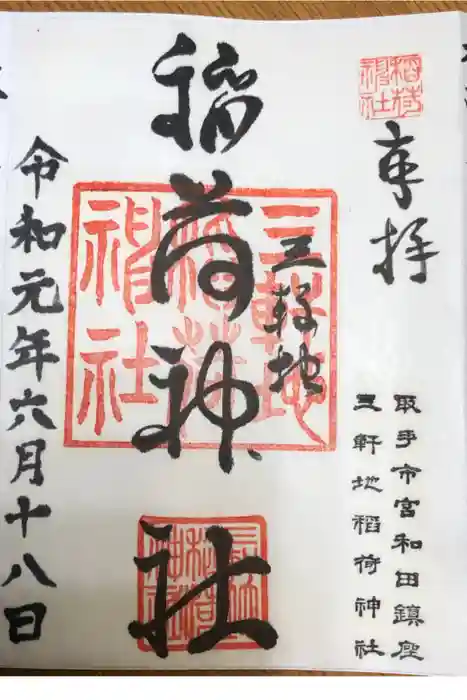 稲荷神社
奉拝
取手市宮和田鎮座
三軒地稲荷神社
三軒地
三軒地稲荷神社
稲荷神社
令和元年六月十八日